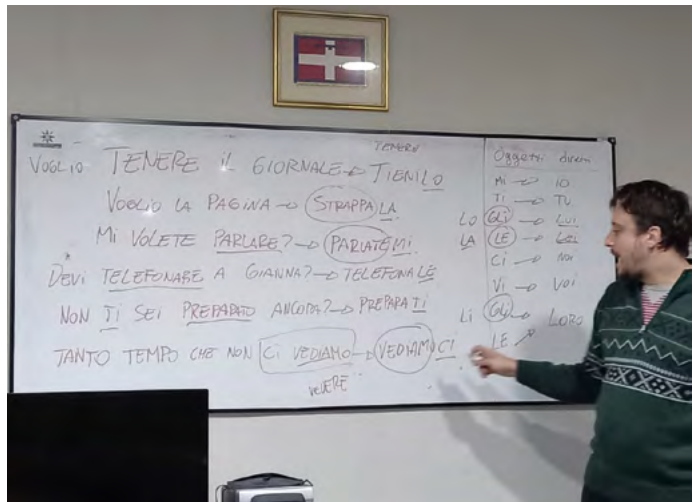 TENERE
VOGLIO TENERE IL GIORNALE → TIENILO
VOGLIO LA PAGINA → STRAPPALA
MI VOLETE PARLARE? → PARLATEMI
DEVI TELEFONARE A GIANNA? → TELEFONALE
NON TI SEI PREPARATO ANCORA? → PREPARATI
TANTO TEMPO CHE NON CI VEDIAMO → VEDIAMOCI
VEDERE
Oggetti diretti
MI → IO
TI → TU
LO GLI → LUI
LA LE → LEI
CI → NOI
VI → VOI
LI GLI → LORO
LE